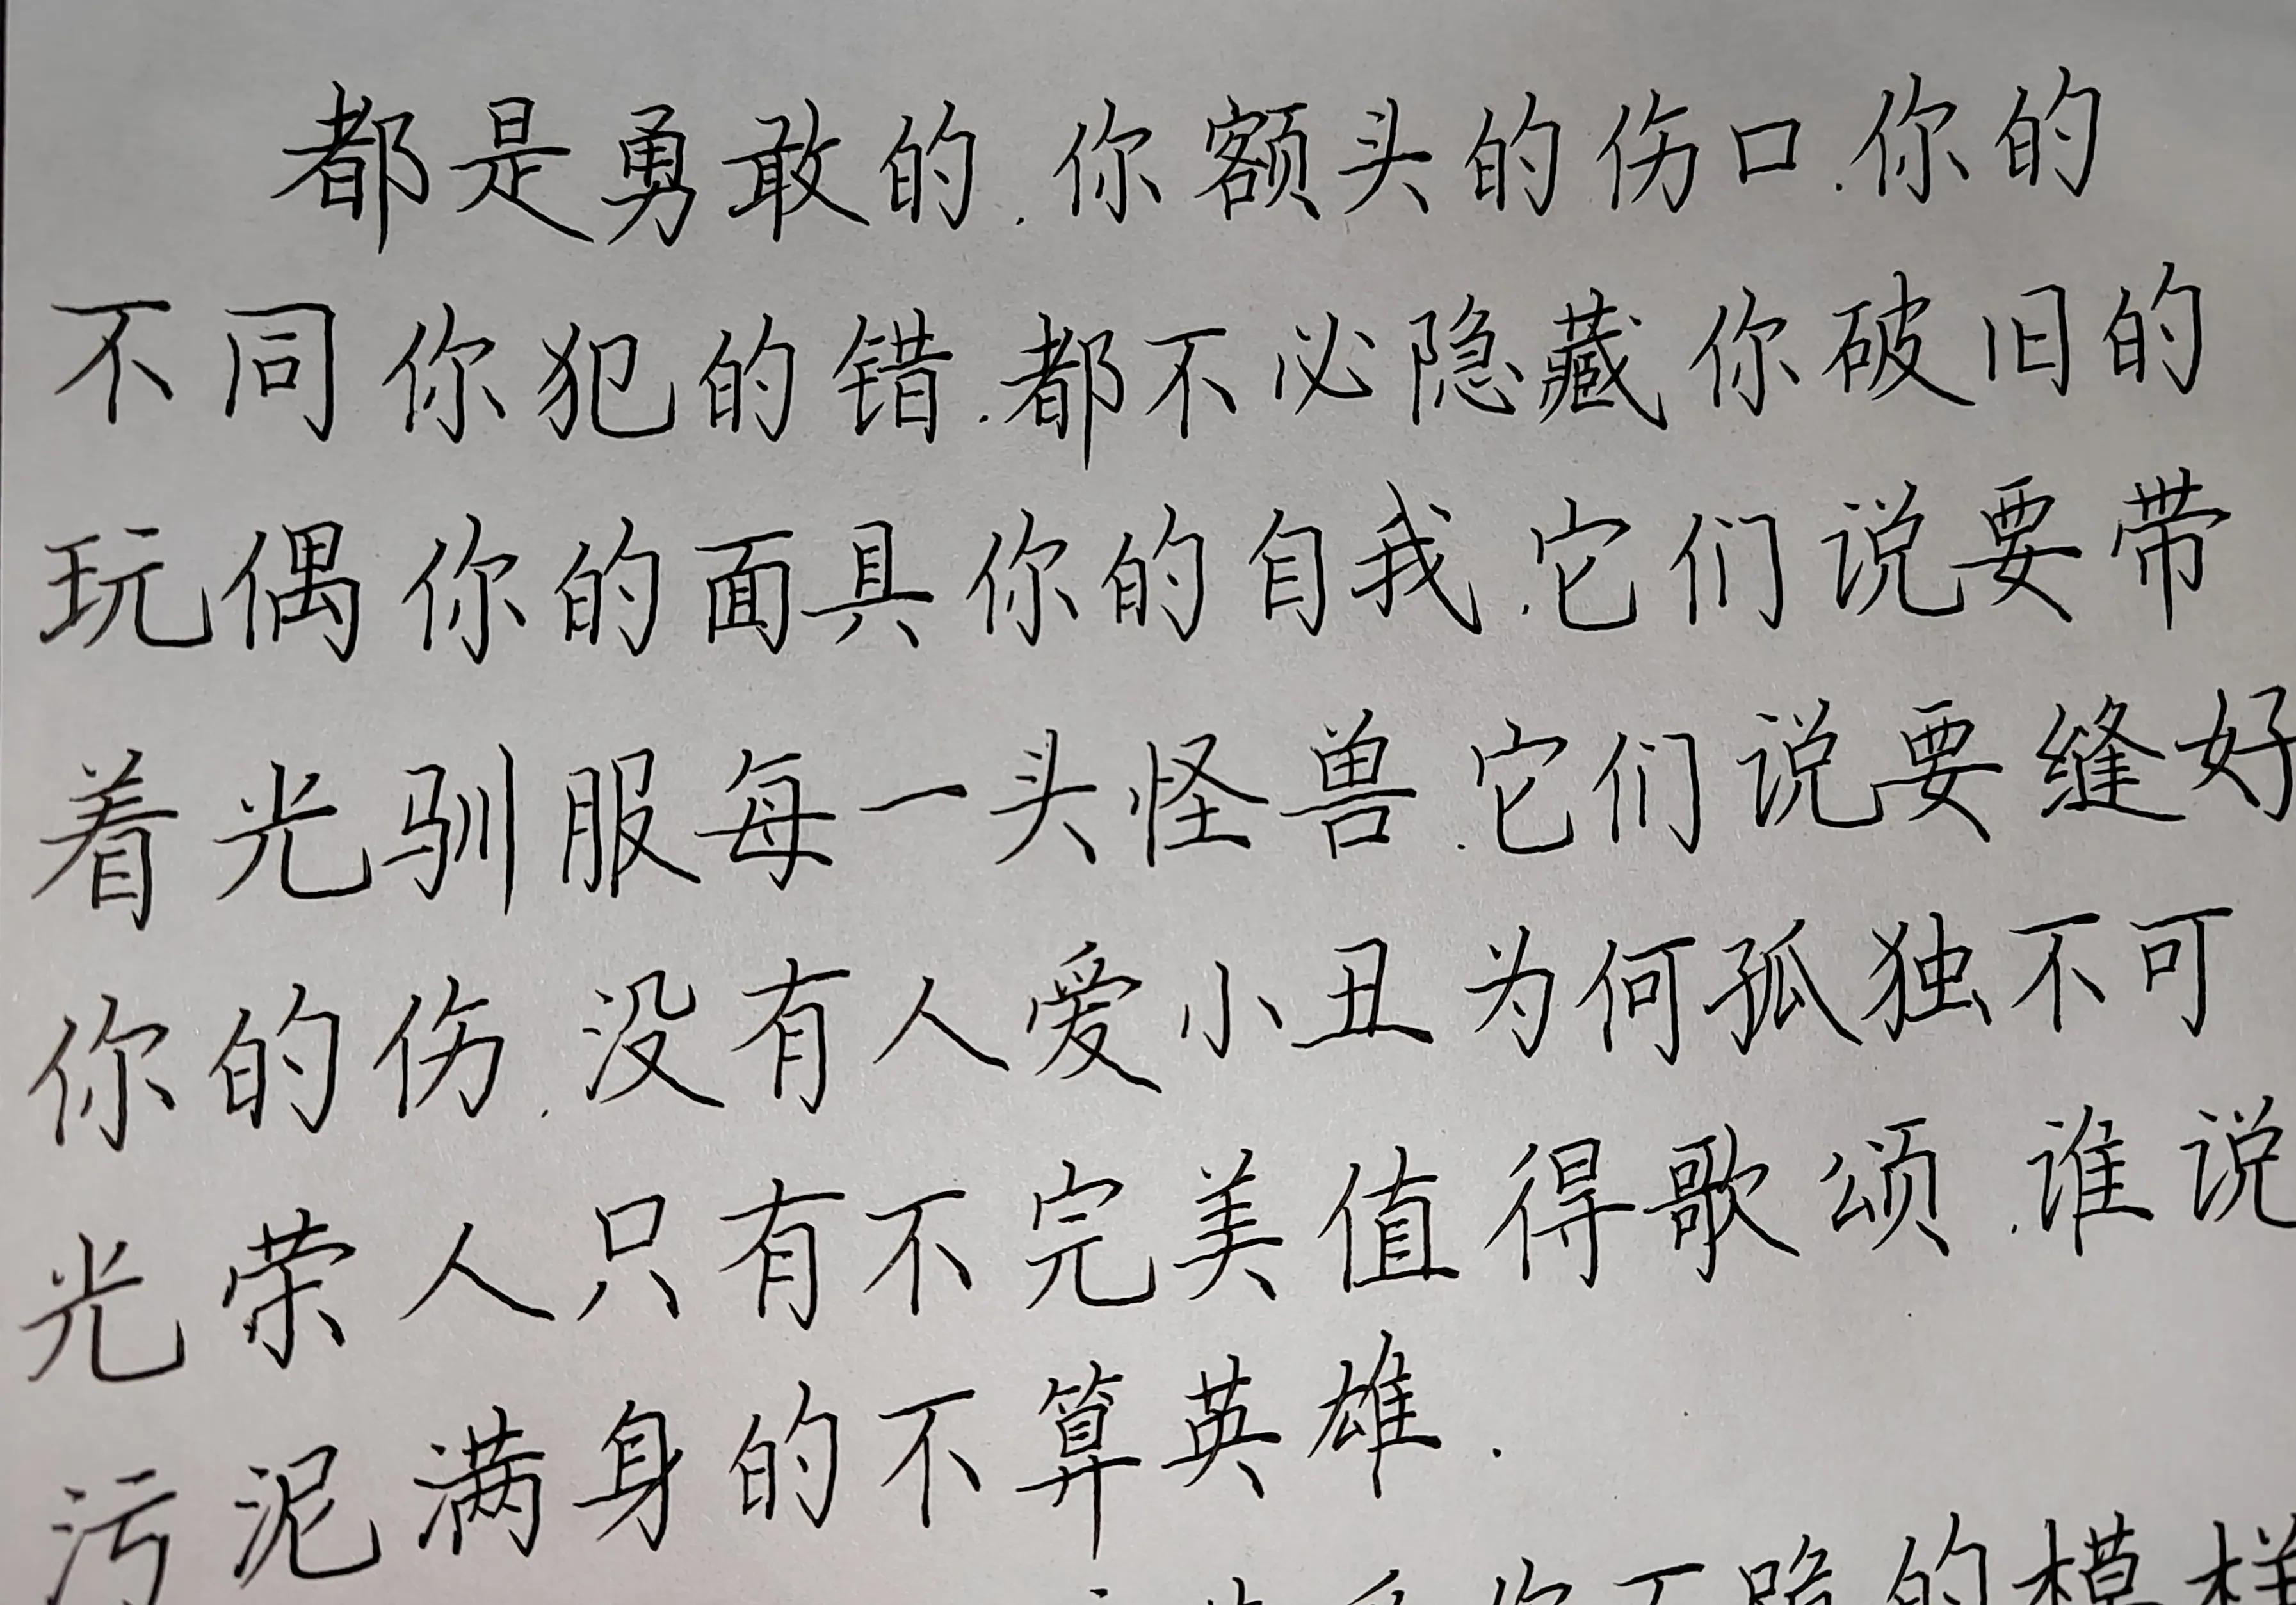 都是勇敢的.你额头的伤口.你的
不同你犯的错.都不必隐藏你破旧的
玩偶你的面具你的自我.它们说要带
着光驯服每一头怪兽.它们说要缝好
你的伤.没有人爱小丑为何孤独不可
光荣人只有不完美值得歌颂.谁说
污泥满身的不算英雄.
你不跪的模样